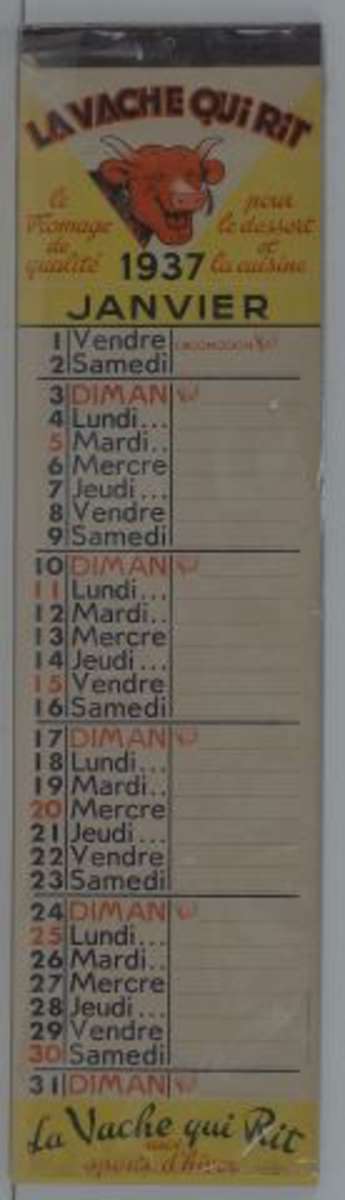 LA VACHE QUi RiT
le fromage de qualité
pour le dessert et la cuisine
1937
JANVIER
1 Vendre
2 Samedi
3 DIMAN
4 Lundi...
5 Mardi..
6 Mercre
7 Jeudi...
8 Vendre
9 Samedi
10 DIMAN
11 Lundi...
12 Mardi..
13 Mercre
14 Jeudi...
15 Vendre
16 Samedi
17 DIMAN
18 Lundi...
19 Mardi..
20 Mercre
21 Jeudi...
22 Vendre
23 Samedi
24 DIMAN
25 Lundi...
26 Mardi..
27 Mercre
28 Jeudi...
29 Vendre
30 Samedi
31 DIMAN
La Vache qui Rit
aux
sports d'hiver